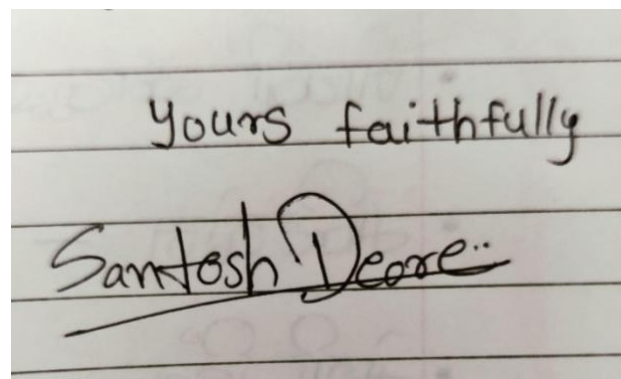 yours faithfully
Santosh Deore..